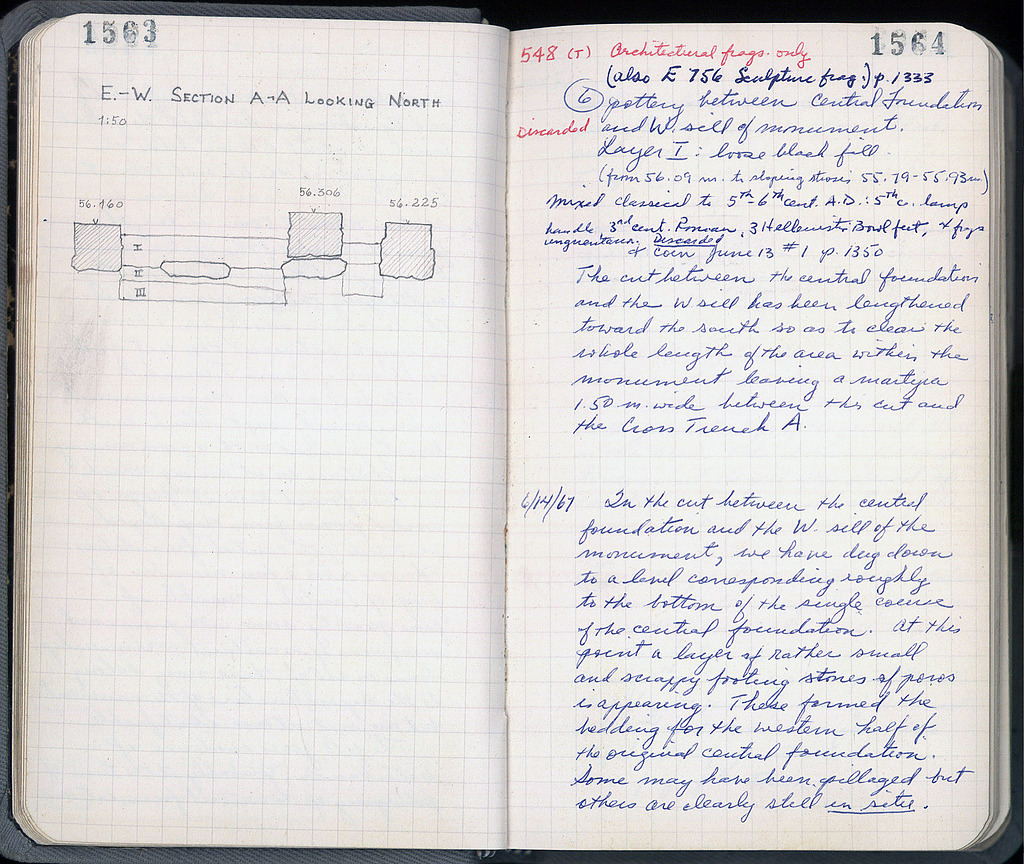 1563
E.-W. SECTION A-A LOOKING NORTH
1:50
56.160
56.306
56.225
I
II
III
1564
548 (T) Architectural frags. only
(also E 756 Sculpture frag.) p. 1333
6 pottery between Central Foundation
Discarded and W. sill of monument.
Layer I: loose black fill.
(from 56.09 m. to sloping strosis 55.79-55.93m.)
Mixed classical to 5th-6th cent. A.D.: 5th c. lamp
handle, 3rd cent. Roman, 3 Hellenistic Bowl feet, + frags
unguentaria. Discarded
+ coin June 13 #1 p. 1350
The cut between the central foundation
and the W sill has been lengthened
toward the south so as to clear the
whole length of the area within the
monument leaving a martyra
1.50 m. wide between this cut and
the Cross Trench A.
6/14/67 In the cut between the central
foundation and the W. sill of the
monument, we have dug down
to a level corresponding roughly
to the bottom of the single course
of the central foundation. At this
point a layer of rather small
and scrappy footing stones of poros
is appearing. These formed the
bedding for the western half of
the original central foundation.
Some may have been pillaged but
others are clearly still in situ.